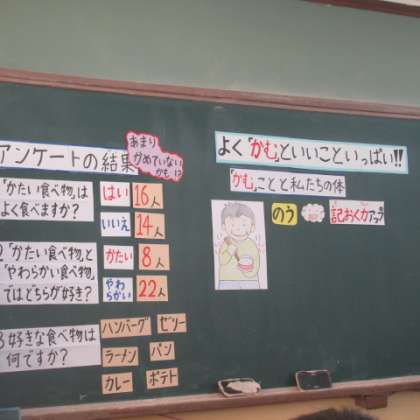 アンケートの結果
あまり
かめていない
かも!?
「かたい食べ物」は
よく食べますか?
はい 16人
いいえ 14人
2 「かたい食べ物」と
「やわらかい食べ物」
ではどちらが好き?
かたい 8人
やわらかい 22人
3 好きな食べ物は
何ですか?
ハンバーグ ゼリー
ラーメン パン
カレー ポテト
よく「かむ」といいこといっぱい!!
「かむ」ことと私たちの体
のう
記おく力アップ